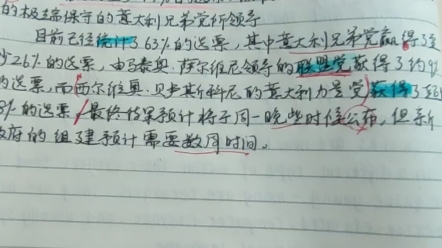 的极端保守的意大利兄弟党所领导
目前已经统计了63%的选票，其中意大利兄弟党赢得了至
少26%的选票，由马泰奥·萨尔维尼领导的联盟党获得了约9%
的选票，而西尔维奥·贝卢斯科尼的意大利力量党获得了超
8%的选票，最终结果预计将于周一晚些时候公布，但新
政府的组建预计需要数周时间。